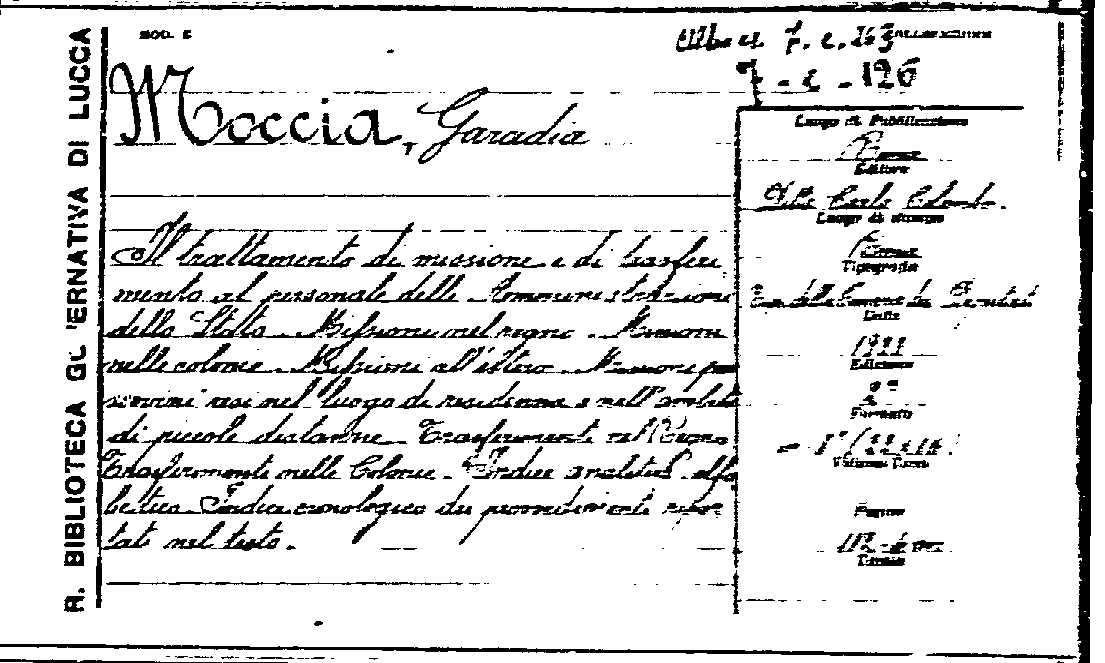 R. BIBLIOTECA GOVERNATIVA DI LUCCA
MOD. E
7 - c - 126
Moccia, Garadia
Il trattamento di missione e di trasferi
mento al personale delle Amministrazioni
dello Stato. Missione nel regno. Missioni
nelle colonie. Missioni all'estero. Missioni per
servizi resi nel luogo di residenza e nell'ambito
di piccole distanze. Trasferimenti nel Regno
Trasferimenti nelle Colonie. Indice analitico alfa
betico. Indice cronologico dei provvedimenti ripor
tati nel testo.
Luogo di Pubblicazione
Roma
Editore
Carlo Colombo
Luogo di stampa
Roma
Tipografia
Data
Edizione
2ª
Formato
Volume Tomo
Pagine